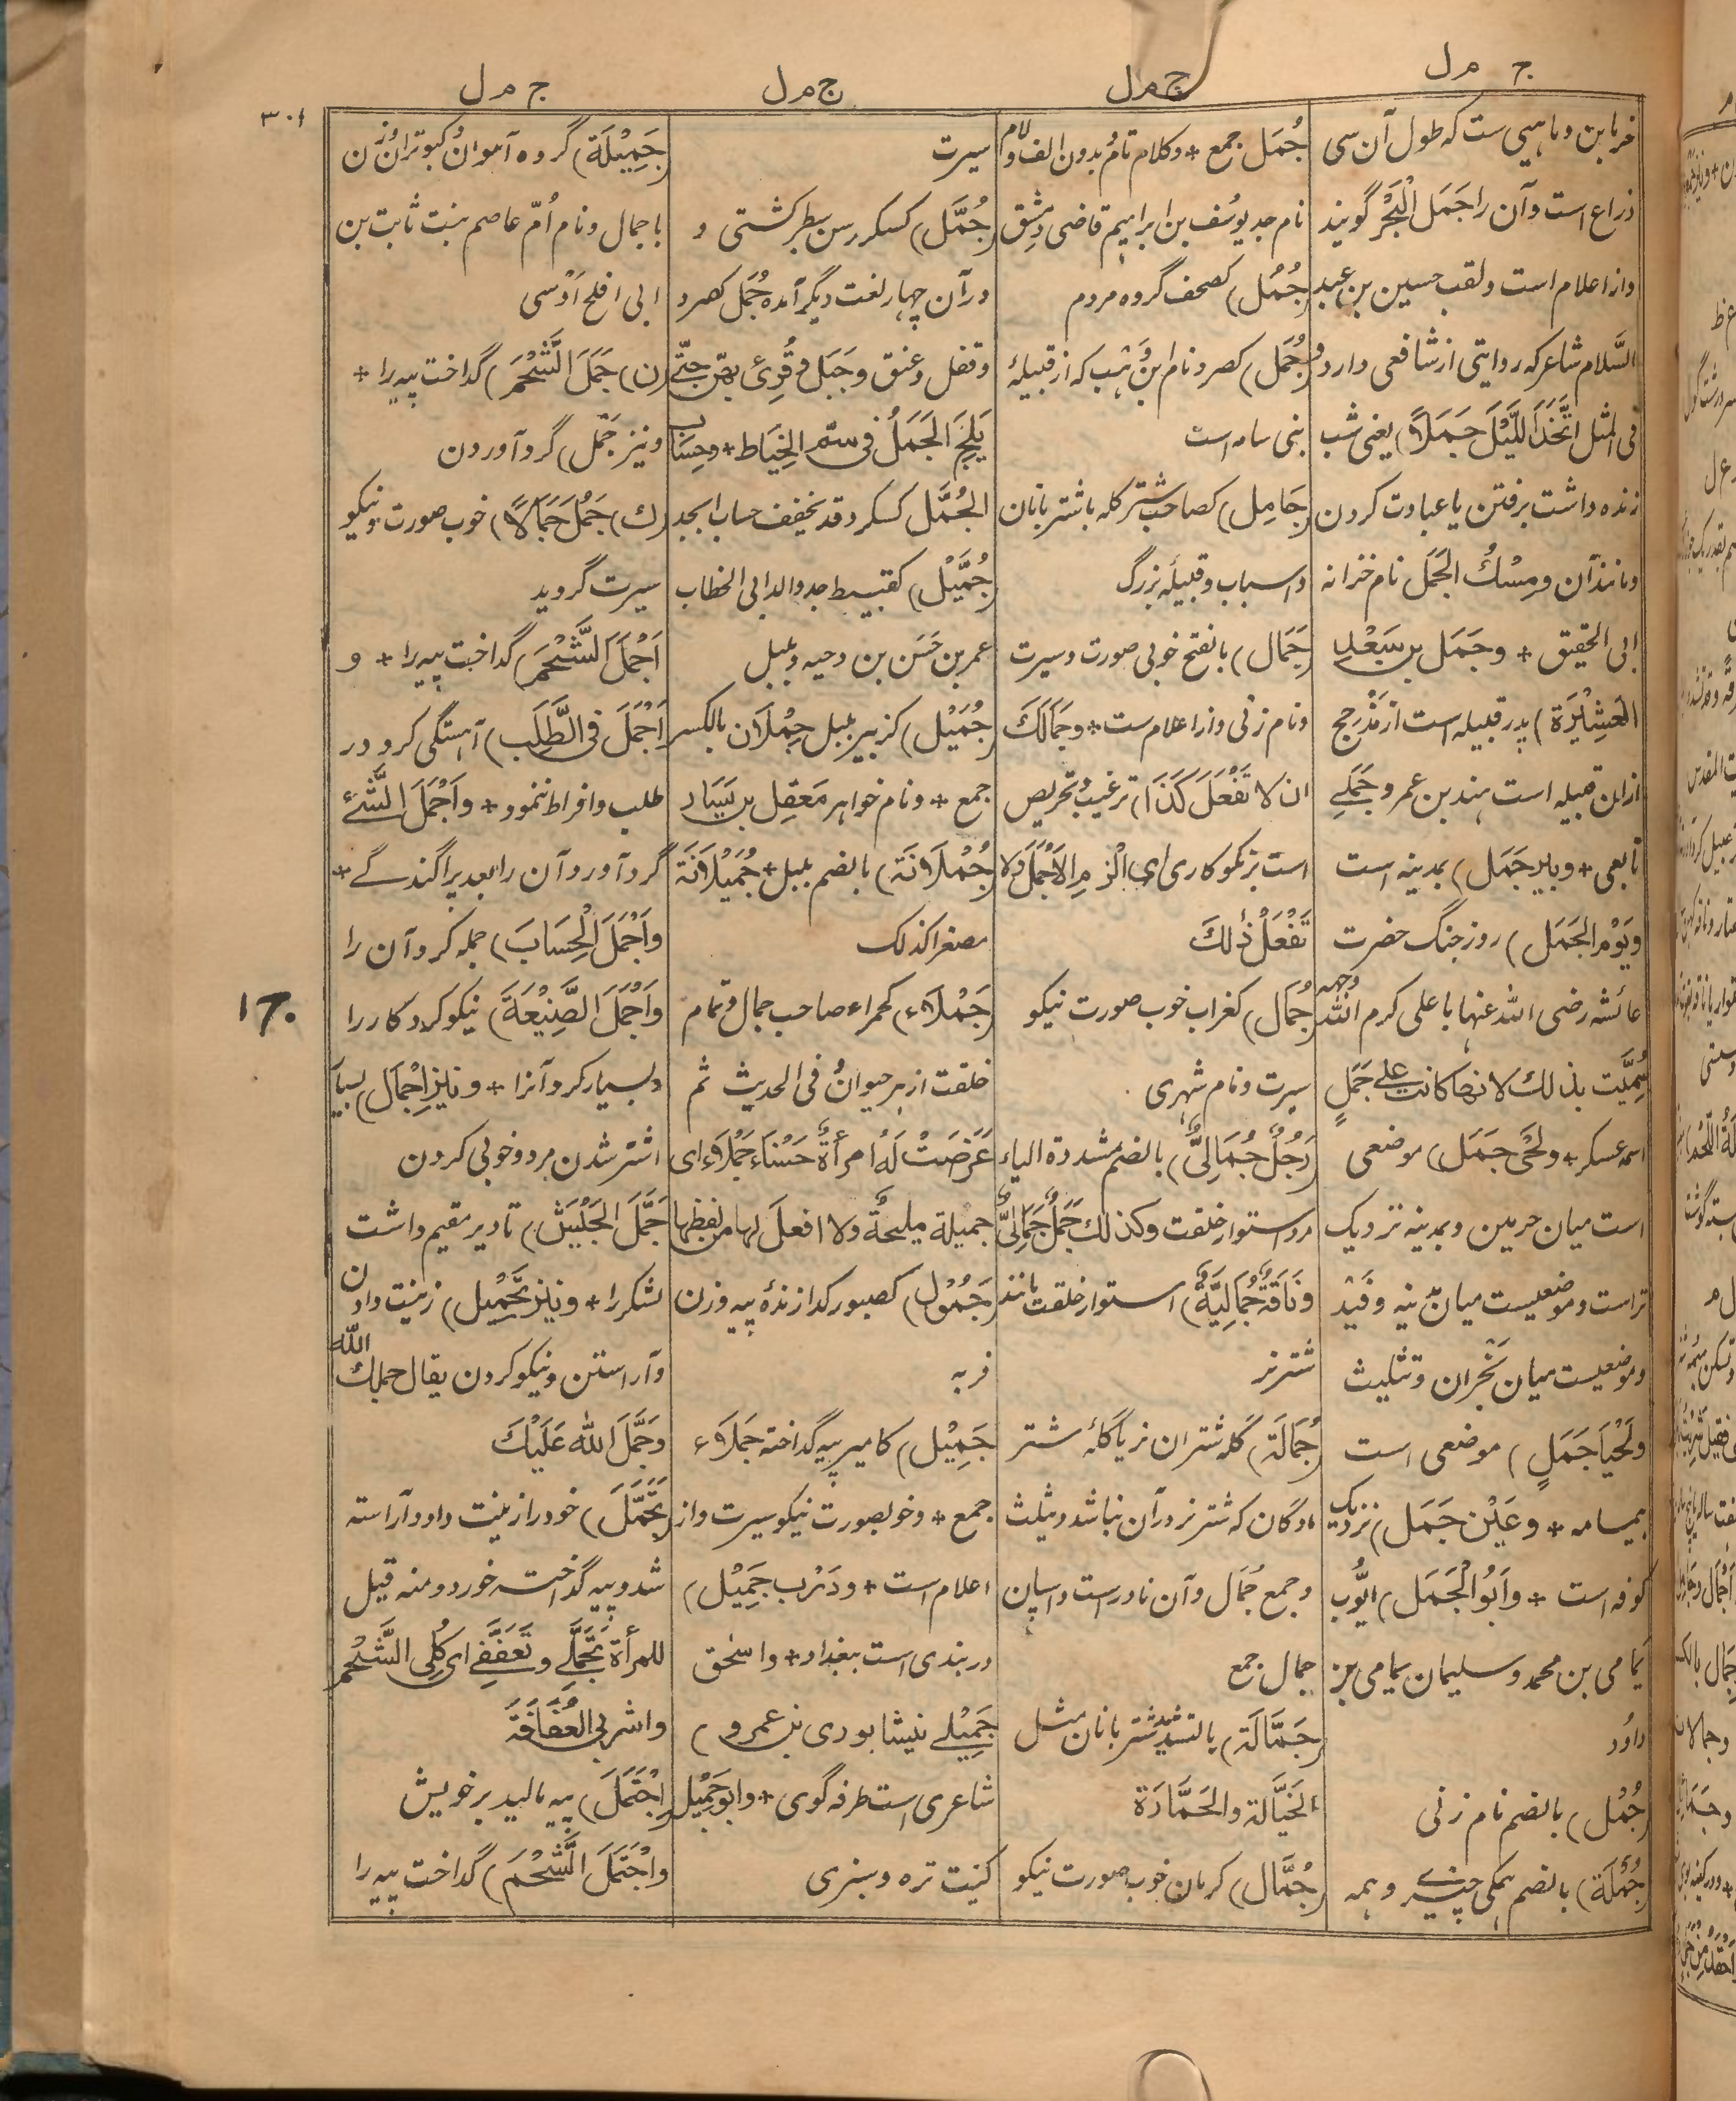 ج م ل
ج م ل
ج م ل
ج م ل
۳۰۱
خرما بن و ماهیی ست که طول آن سی
ذراع است و آن را جَمَل الْبَحْر گویند
و از اعلام است و لقب حسین بن عبد
السّلام شاعر که روایتی از شافعی دارد و
فی المثل اتَّخَذَ اللَّيْلَ جَمَلًا) یعنی شب
زنده داشت برفتن یا عبادت کردن
و مانند آن و مِسْكُ الجَمَل نام خزانه
ابی الحقیق + وجَمَل بن سَعْد
العَشِيْرَة) پدر قبیله است از مَذْحِج
ازان قبیله است هند بن عمرو جَمَلی
تابعی + و بئر جَمَل) بمدینه است
ویَوْم الجَمَل) روز جنگ حضرت
عائشه رضی الله عنها با علی کرم الله وجهه
سُمِّيَت بذلك لانها كانت على جَمَلٍ
اسمه عسکر + ولَحْیُ جَمَل) موضعی
است میان حرمین و بمدینه نزدیک
تر است و موضعیست میان مدینه و فَیْد
و موضعیست میان نَجْران و تثلیث
ولَحْیَا جَمَلٍ) موضعی است
بیمامه + و عَیْن جَمَل) نزدیک
کوفه است + وأبُو الْجَمَل) ایّوب
یمامی بن محمد و سلیمان یمامی بن
داود
(جُمْل) بالضم نام زنی
(جُمْلَة) بالضم همگی چیزے و همه
جُمَل جمع + و کلام تام بدون الف و لام
نام جد یوسُف بن ابراهیم قاضی دمشق
(جُمُل) کصحف گروه مردم
(جُمَل) کصرد نام بن وَهْب که از قبیلهٔ
بنی سامه است
(جَامِل) کصاحب شتر گله با شتربانان
و اسباب و قبیلهٔ بزرگ
(جَمَال) بالفتح خوبی صورت و سیرت
و نام زنی و از اعلام ست + وجَمَالَكَ
ان لا تَفْعَلَ كَذَا) ترغیب و تحریص
است بر نکوکاری ای الْزمِ الاَجْمَلَ ولا
تَفْعَلْ ذٰلك
(جُمَال) کغراب خوب صورت نیکو
سیرت و نام شهری
(رَجُلٌ جُمَالِیٌّ) بالضم مشددة الیاء
مرد استوار خلقت وکذلك جَمَلٌ جُمَالِیٌّ
ونَاقَةٌ جُمَالِیَّةٌ) استوار خلقت مانند
شتر نر
(جُمَالَة) گله شتران نر یا گلهٔ شتر
مادگان که شتر نر در آن نباشد و یثلث
و جمع جُمَال و آن نادر است و اسپان
جمال جمع
(جَمَّالَة) بالتشدید شتربانان مثل
الخَيَّالة والحَمَّارَة
(جُمَّال) کرمان خوب صورت نیکو
سیرت
(جُمَّل) کسکر رسن سطبر کشتی و
در آن چهار لغت دیگر آمده جُمَل کصرد
و قفل و عنق و جَبَل و قُرِئ بهن حتّے
یَلِجَ الْجَمَلُ فی سمّ الخِیَاط + وحِسَاب
الجُمَّل کسکر و قد یخفف حساب ابجد
(جُمَّیْل) کقبیط جد والد ابی الخطاب
عمر بن حَسَن بن دحیه و بلبل
(جُمَیْل) کزبیر بلبل جِمْلَان بالکسر
جمع + و نام خواهر مَعْقِل بن یَسَار
(جُمْلَانَة) بالضم بلبل + جُمَیْلَانَة
مصغرا کذلک
(جَمْلَاء) کحمراء صاحب جمال و تمام
خلقت از هر حیوان وفی الحدیث ثم
عَرَضَتْ لَهُ امرأةٌ حَسْنَاء جَمْلَاء ای
جمیلة ملیحةٌ ولا افعلَ لها من لفظها
(جَمُوْل) کصبور گدازندهٔ پیه و زن
فربه
(جَمِیْل) کامیر پیه گداخته جَمْلَاء
جمع + و خوبصورت نیکو سیرت و از
اعلام است + و دَرْب جَمِیْل)
دربندی است ببغداد + و اسحٰق
جَمِیْلے نیشابوری بن عمرو)
شاعری است طرفه گوی + و ابو جَمِیْل
کنیت تره و سبزی
(جَمِیْلَة) گروه آهوان و کبوتران و زن
با جمال و نام اُمّ عاصم بنت ثابت بن
ابی افلح اَوْسی
(ن) جَمَلَ الشَّحْمَ) گداخت پیه را +
و نیز جَمْل) گرد آوردن
(ك) جَمُلَ جَمَالاً) خوب صورت و نیکو
سیرت گردید
اَجْمَلَ الشَّحْمَ) گداخت پیه را + و
اَجْمَلَ فی الطَّلَب) آهستگی کرد در
طلب و افراط ننمود + واَجْمَلَ الشَّیْ
گرد آورد آن را بعد پراگندگے +
واَجْمَلَ الْحِسَابَ) جمله کرد آن را
واَجْمَلَ الصَّنِیْعَةَ) نیکو کرد کار را
و بسیار کرد آنرا + ونیز اِجْمَال) بسیار
اشتر شدن مرد و خوبی کردن
جَمَّلَ الجَیْشَ) تا دیر مقیم داشت
لشکر را + ونیز تَجْمِیل) زینت دادن
و آراستن و نیکو کردن یقال جملك الله
وجَمَّلَ الله عَلَیْكَ
(تَجَمَّلَ) خود را زینت داد و آراسته
شد و پیه گداخته خورد و منه قیل
للمرأة تَجَمَّلِی و تَعَفَّفِی ای کُلِی الشَّحْم
واشربی العُفَافَةَ
(اِجْتَمَلَ) پیه مالید بر خویش
واجْتَمَلَ الشَّحْمَ) گداخت پیه را
17.